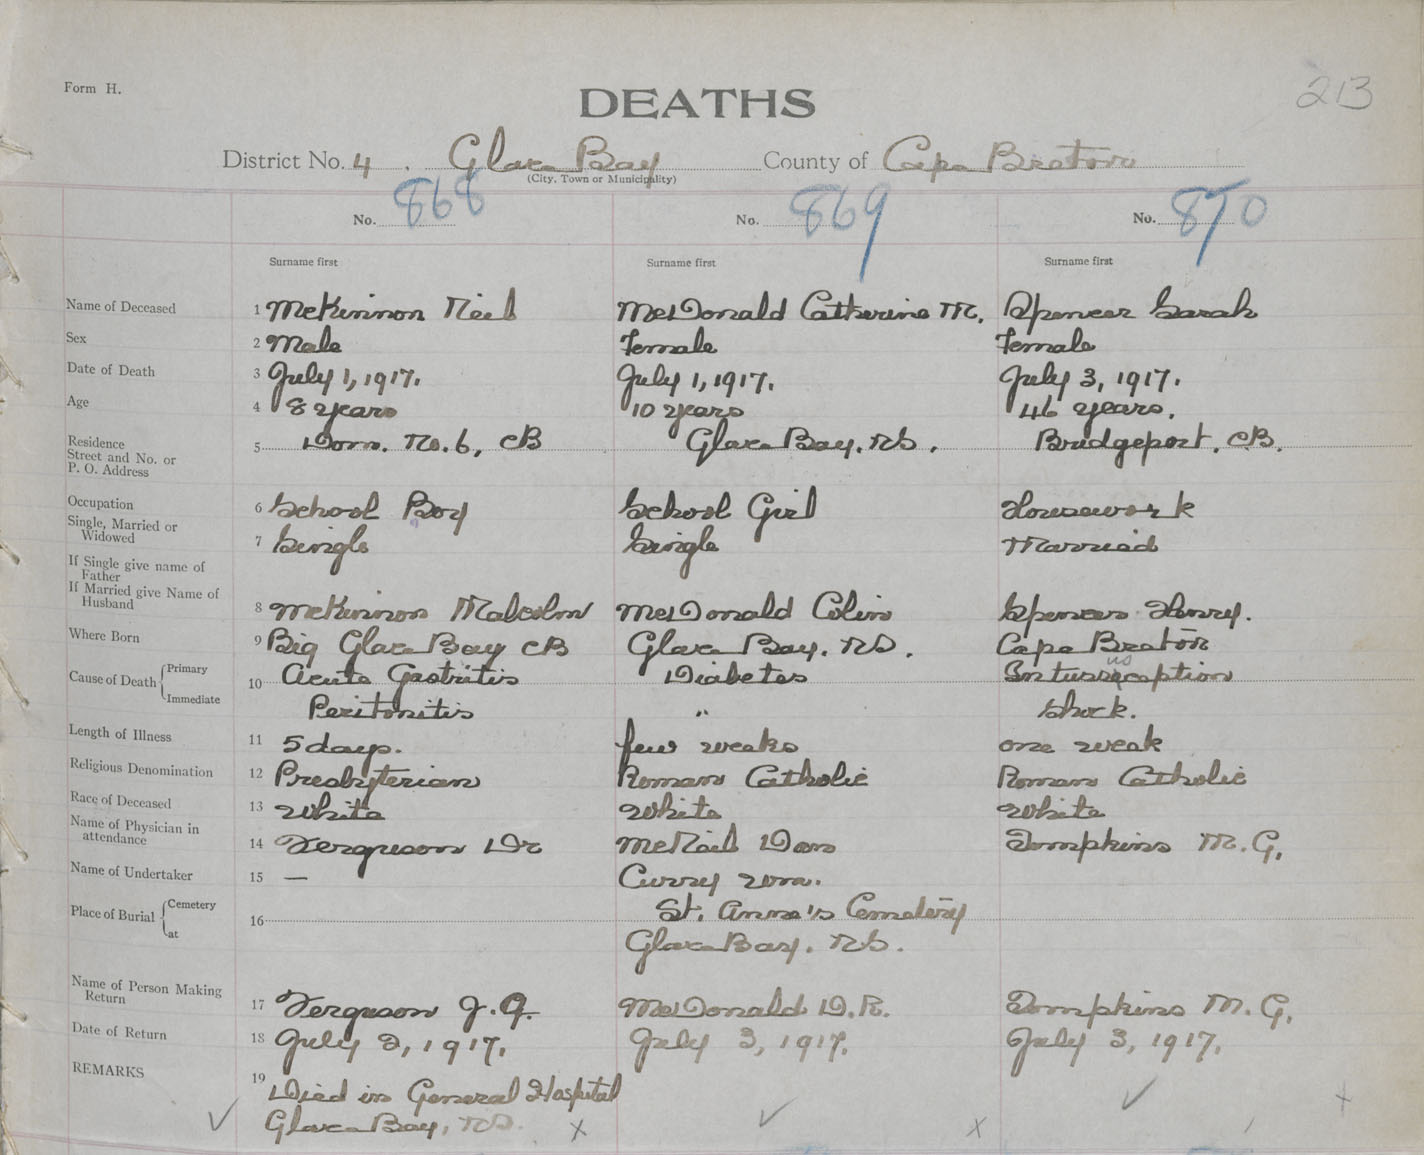 Form H.
213
DEATHS
District No. 4. Glace Bay County of Cape Breton
(City, Town or Municipality)
No. 868 No. 869 No. 870
Surname first Surname first Surname first
Name of Deceased 1 McKinnon Neil McDonald Catherine M. Spencer Sarah
Sex 2 Male Female Female
Date of Death 3 July 1, 1917. July 1, 1917. July 3, 1917.
Age 4 8 years 10 years 46 years.
Residence
Street and No. or 5 Dom. No. 6, CB Glace Bay, NS. Bridgeport, CB.
P. O. Address
Occupation 6 School Boy School Girl Housework
Single, Married or
Widowed 7 Single Single Married
If Single give name of
Father
If Married give Name of
Husband 8 McKinnon Malcolm McDonald Colin Spencer Henry.
Where Born 9 Big Glace Bay CB Glace Bay, NS. Cape Breton
Cause of Death Primary 10 Acute Gastritis Diabetes Intussusception
Immediate Peritonitis " Shock.
Length of Illness 11 5 days. few weeks one week
Religious Denomination 12 Presbyterian Roman Catholic Roman Catholic
Race of Deceased 13 White White White
Name of Physician in
attendance 14 Ferguson Dr McNeil Dan Tompkins M. G.
Name of Undertaker 15 — Curry Wm.
Place of Burial Cemetery 16 St. Anne's Cemetery
at Glace Bay, NS.
Name of Person Making
Return 17 Ferguson J. A. McDonald D. R. Tompkins M. G.
Date of Return 18 July 2, 1917. July 3, 1917. July 3, 1917.
REMARKS 19 Died in General Hospital
Glace Bay, NS.